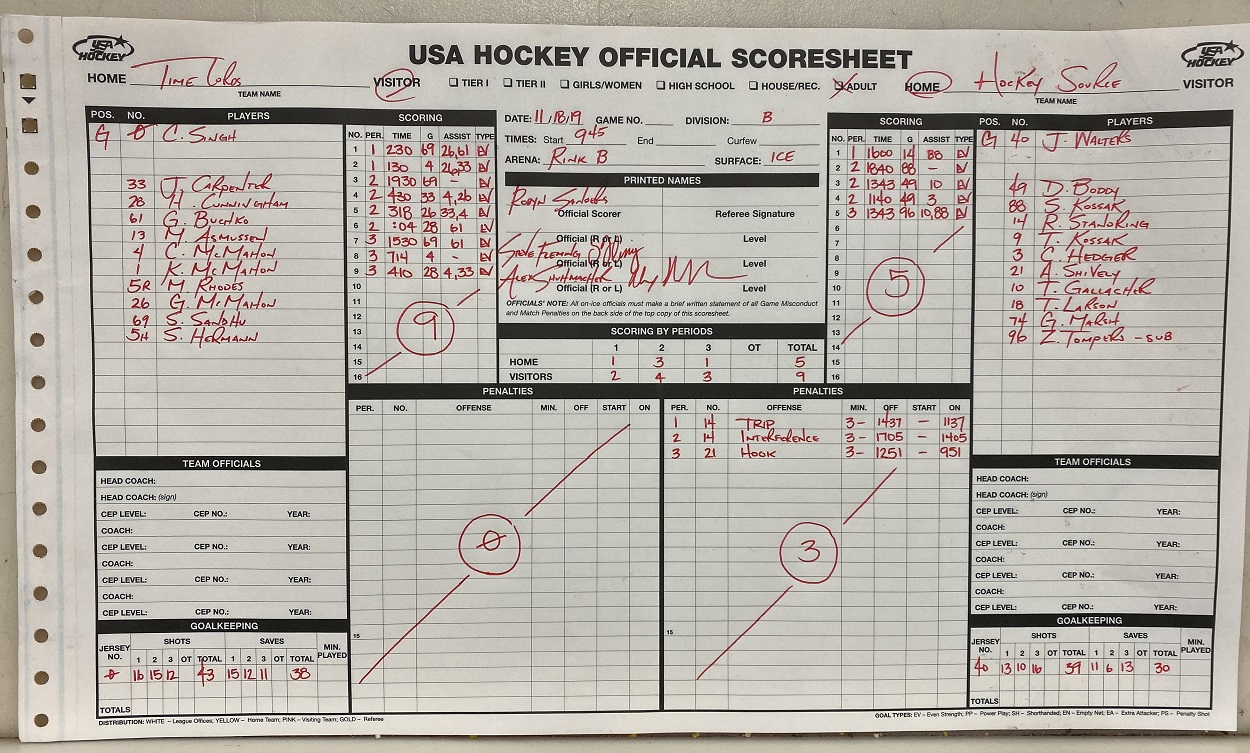 USA HOCKEY
USA HOCKEY OFFICIAL SCORESHEET
USA HOCKEY
HOME Time Lords VISITOR
TEAM NAME
☐ TIER I ☐ TIER II ☐ GIRLS/WOMEN ☐ HIGH SCHOOL ☐ HOUSE/REC. ☒ ADULT
HOME Hockey Source VISITOR
TEAM NAME
POS. NO. PLAYERS
G 0 C. Singh
33 J. Carpenter
28 H. Cunningham
61 G. Buchko
13 M. Asmussen
4 C. McMahon
1 K. McMahon
5R M. Rhodes
26 G. McMahon
69 S. Sandhu
5H S. Hermann
SCORING
NO. PER. TIME G ASSIST TYPE
1 1 230 69 26,61 EV
2 1 130 4 26,33 EV
3 2 1930 69 - EV
4 2 430 33 4,26 EV
5 2 318 26 33,4 EV
6 2 :04 28 61 EV
7 3 1530 69 61 EV
8 3 714 4 - EV
9 3 410 28 4,33 EV
10
11
12
13
14
15
16
9
DATE: 11/18/19 GAME NO. DIVISION: B
TIMES: Start 945 End Curfew
ARENA: Rink B SURFACE: ICE
PRINTED NAMES
Robyn Sanders
Official Scorer Referee Signature
Official (R or L) Level
Steve Fleming
Official (R or L) Level
Alex Shuhmacher
Official (R or L) Level
OFFICIALS' NOTE: All on-ice officials must make a brief written statement of all Game Misconduct
and Match Penalties on the back side of the top copy of this scoresheet.
SCORING BY PERIODS
1 2 3 OT TOTAL
HOME 1 3 1 5
VISITORS 2 4 3 9
SCORING
NO. PER. TIME G ASSIST TYPE
1 1 1600 14 88 EV
2 2 1840 88 - EV
3 2 1343 49 10 EV
4 2 1140 49 3 EV
5 3 1343 96 10,88 EV
6
7
8
9
10
11
12
13
14
15
16
5
POS. NO. PLAYERS
G 40 J. Walters
49 D. Boddy
88 S. Kossak
14 R. Standring
9 T. Kossak
3 C. Hedgier
21 A. Shively
10 T. Gallacher
18 T. Larson
74 G. Marsh
96 Z. Tompers - SUB
PENALTIES
PER. NO. OFFENSE MIN. OFF START ON
15
0
PENALTIES
PER. NO. OFFENSE MIN. OFF START ON
1 14 Trip 3- 1437 - 1137
2 14 Interference 3- 1705 - 1405
3 21 Hook 3- 1251 - 951
15
3
TEAM OFFICIALS
HEAD COACH:
HEAD COACH: (sign)
CEP LEVEL: CEP NO.: YEAR:
COACH:
CEP LEVEL: CEP NO.: YEAR:
COACH:
CEP LEVEL: CEP NO.: YEAR:
COACH:
CEP LEVEL: CEP NO.: YEAR:
GOALKEEPING
JERSEY NO. SHOTS SAVES MIN. PLAYED
1 2 3 OT TOTAL 1 2 3 OT TOTAL
0 16 15 12 43 15 12 11 38
TOTALS
TEAM OFFICIALS
HEAD COACH:
HEAD COACH: (sign)
CEP LEVEL: CEP NO.: YEAR:
COACH:
CEP LEVEL: CEP NO.: YEAR:
COACH:
CEP LEVEL: CEP NO.: YEAR:
COACH:
CEP LEVEL: CEP NO.: YEAR:
GOALKEEPING
JERSEY NO. SHOTS SAVES MIN. PLAYED
1 2 3 OT TOTAL 1 2 3 OT TOTAL
40 13 10 16 39 11 6 13 30
TOTALS
DISTRIBUTION: WHITE – League Offices; YELLOW – Home Team; PINK – Visiting Team; GOLD – Referee
GOAL TYPES: EV – Even Strength; PP – Power Play; SH – Shorthanded; EN – Empty Net; EA – Extra Attacker; PS – Penalty Shot